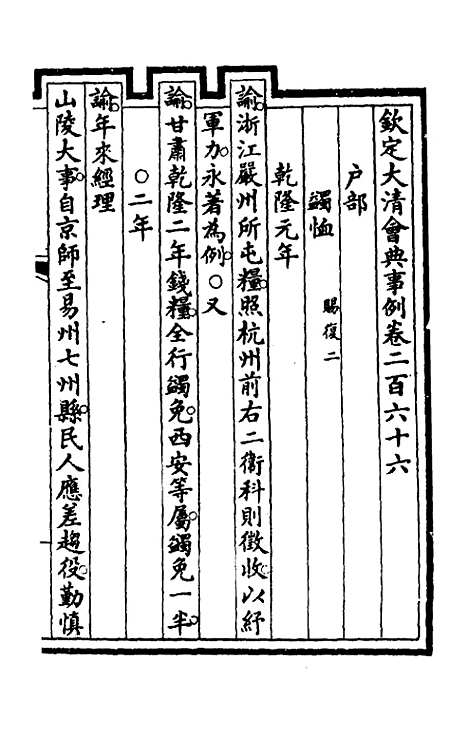 欽定大清會典事例卷二百六十六
戶部
蠲恤 賜復二
乾隆元年
諭浙江嚴州所屯糧照杭州前右二衛科則徵收以紓
軍力永著為例○又
諭甘肅乾隆二年錢糧全行蠲免西安等屬蠲免一半
○二年
諭年來經理
山陵大事自京師至易州七州縣民人應差趨役勤慎